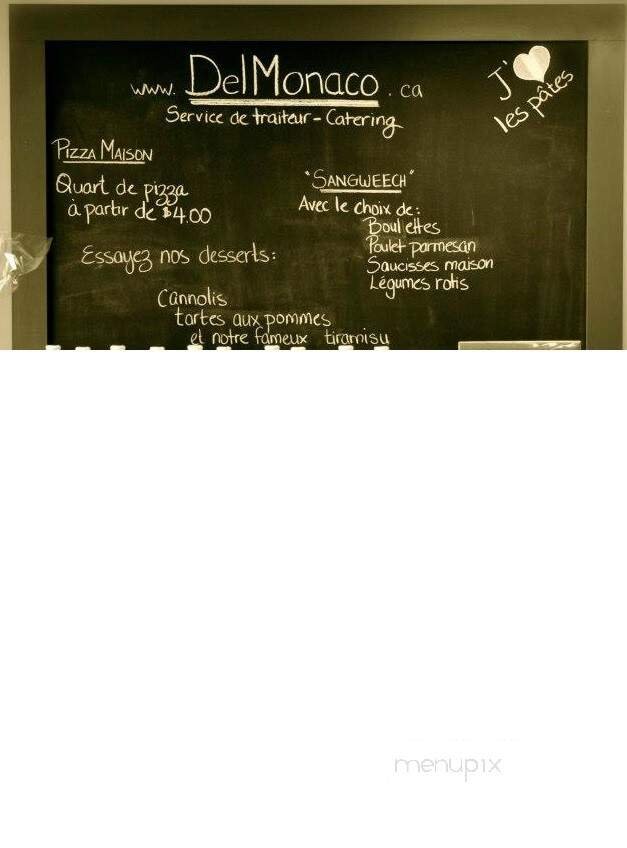 www. DelMonaco.ca
Service de traiteur - Catering
J' ♥
les pâtes
PIZZA MAISON
Quart de pizza
à partir de $4.00
"SANGWEECH"
Avec le choix de:
Boulettes
Poulet parmesan
Saucisses maison
Légumes rotis
Essayez nos desserts:
Cannolis
tartes aux pommes
et notre fameux tiramisu
menupix